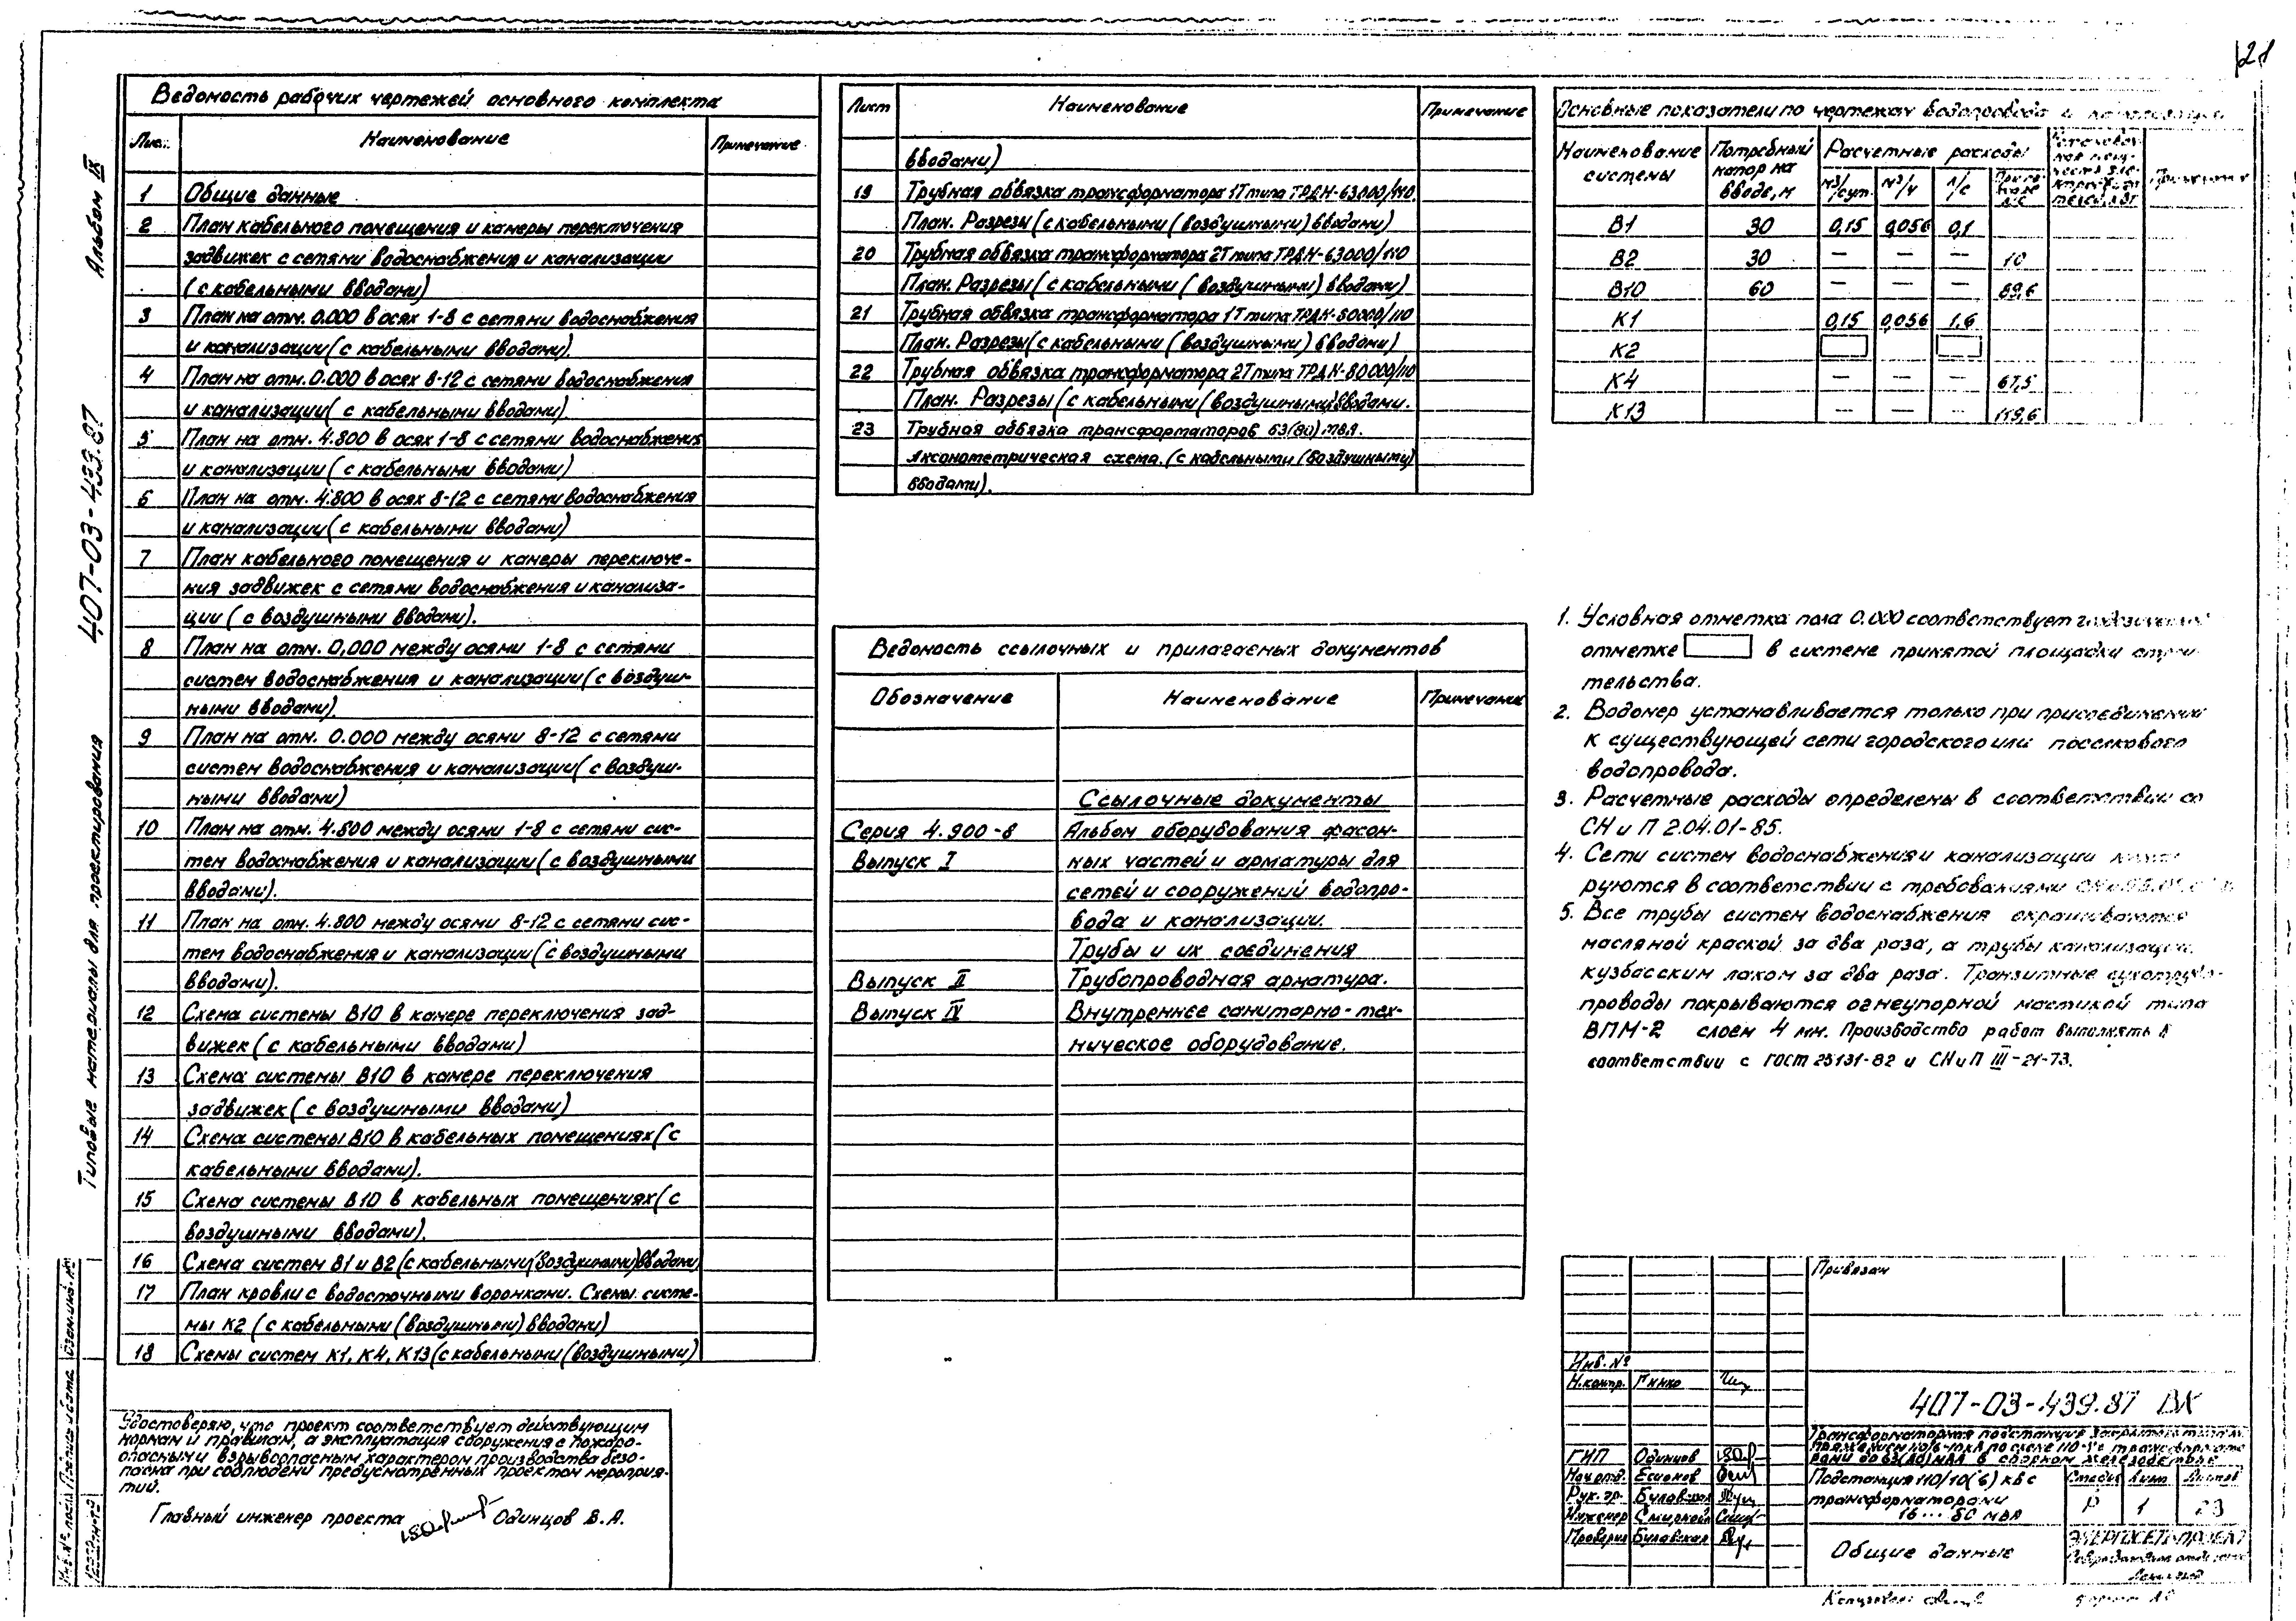 21
Альбом IX
407-03-439.87
Типовые материалы для проектирования
Ведомость рабочих чертежей основного комплекта
Лис. Наименование Примечание
1 Общие данные
2 План кабельного помещения и камеры переключения
задвижек с сетями водоснабжения и канализации
(с кабельными вводами)
3 План на отм. 0.000 в осях 1-8 с сетями водоснабжения
и канализации (с кабельными вводами).
4 План на отм. 0.000 в осях 8-12 с сетями водоснабжения
и канализации (с кабельными вводами)
5 План на отм. 4.800 в осях 1-8 с сетями водоснабжения
и канализации (с кабельными вводами)
6 План на отм. 4.800 в осях 8-12 с сетями водоснабжения
и канализации (с кабельными вводами)
7 План кабельного помещения и камеры переключе-
ния задвижек с сетями водоснабжения и канализа-
ции (с воздушными вводами).
8 План на отм. 0,000 между осями 1-8 с сетями
систем водоснабжения и канализации (с воздуш-
ными вводами).
9 План на отм. 0.000 между осями 8-12 с сетями
систем водоснабжения и канализации (с воздуш-
ными вводами)
10 План на отм. 4.800 между осями 1-8 с сетями сис-
тем водоснабжения и канализации (с воздушными
вводами).
11 План на отм. 4.800 между осями 8-12 с сетями сис-
тем водоснабжения и канализации (с воздушными
вводами).
12 Схема системы В10 в камере переключения зад-
вижек (с кабельными вводами)
13 Схема системы В10 в камере переключения
задвижек (с воздушными вводами)
14 Схема системы В10 в кабельных помещениях (с
кабельными вводами).
15 Схема системы В10 в кабельных помещениях (с
воздушными вводами).
16 Схема систем В1 и В2 (с кабельными (воздушными) вводами
17 План кровли с водосточными воронками. Схемы систе-
мы К2 (с кабельными (воздушными) вводами)
18 Схемы систем К1, К4, К13 (с кабельными (воздушными)
Удостоверяю, что проект соответствует действующим
нормам и правилам, а эксплуатация сооружения с пожаро-
опасными взрывоопасным характером производства безо-
пасна при соблюдени предусмотренных проектом мероприя-
тий.
Главный инженер проекта Одинцов В.А.
Лист Наименование Примечание
вводами)
19 Трубная обвязка трансформатора 1Т типа ТРДН-63000/110.
План. Разрезы (с кабельными (воздушными) вводами)
20 Трубная обвязка трансформатора 2Т типа ТРДН-63000/110
План. Разрезы (с кабельными (воздушными) вводами)
21 Трубная обвязка трансформатора 1Т типа ТРДН-80000/110
План. Разрезы (с кабельными (воздушными) вводами)
22 Трубная обвязка трансформатора 2Т типа ТРДН-80000/110
План. Разрезы (с кабельными (воздушными) вводами.
23 Трубная обвязка трансформаторов 63(80) МВА.
Аксонометрическая схема. (с кабельными (воздушными)
вводами).
Ведомость ссылочных и прилагаемых документов
Обозначение Наименование Примечание
Ссылочные документы
Серия 4.900-8 Альбом оборудования фасон-
Выпуск I ных частей и арматуры для
сетей и сооружений водопро-
вода и канализации.
Трубы и их соединения
Выпуск II Трубопроводная арматура.
Выпуск IV Внутреннее санитарно-тех-
ническое оборудование.
Основные показатели по чертежам водопровода и
Наименование системы Потребный напор на вводе, м Расчетные расходы Примечание
м3/сут м3/ч л/с
В1 30 0,15 0,056 0,1
В2 30 — — — 10
В10 60 — — — 89,6
К1 0,15 0,056 1.6
К2
К4 — — — 67,5
К13 — — — 119,6
1. Условная отметка пола 0.000 соответствует
отметке в системе принятой площадки строи-
тельства.
2. Водомер устанавливается только при присоединении
к существующей сети городского или поселкового
водопровода.
3. Расчетные расходы определены в соответствии со
СНиП 2.04.01-85.
4. Сети систем водоснабжения и канализации
руются в соответствии с требованиями
5. Все трубы систем водоснабжения окрашиваются
масляной краской за два раза, а трубы канализации
кузбасским лаком за два раза. Транзитные сухотрубо-
проводы покрываются огнеупорной мастикой типа
ВПМ-2 слоем 4 мм. Производство работ выполнять в
соответствии с ГОСТ 25131-82 и СНиП III-21-73.
Привязан
Инв. №
Н.контр. Гинко
407-03-439.87 ВК
Трансформаторная подстанция закрытого типа
ГИП Одинцов
Нач.отд.
Рук. гр.
Инженер
Проверил Булавская
Подстанция 110/10(6) кВ с
трансформаторами
16...80 МВА
Стадия Лист Листов
Р 1 23
Общие данные
ЭНЕРГОСЕТЬПРОЕКТ